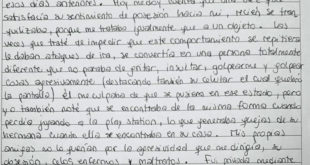 esos días anteriores. Hoy me doy cuenta que una vez que
satisfacía su sentimiento de posesión hacia mí, recién, se tran-
quilizaba, porque me trataba igualmente que a un objeto. Las
veces que traté de impedir que este comportamiento se repitiera
le daban ataques de ira, se convertía en una persona totalmente
diferente que no paraba de gritar, insultar, golpearme y golpear
cosas agresivamente (destacando también su celular el cual quebró
la pantalla). El me culpaba de que se pusiera en ese estado, pero
yo también noté que se encontraba de la misma forma cuando
perdía jugando a la play station, lo que generaba quejas de tu
hermana cuando ella se encontraba en su casa. Mis propias
amigas no lo querían por la agresividad que me dirigía, tu
obsesión, celos enfermos y maltratos. Fui privada mediante